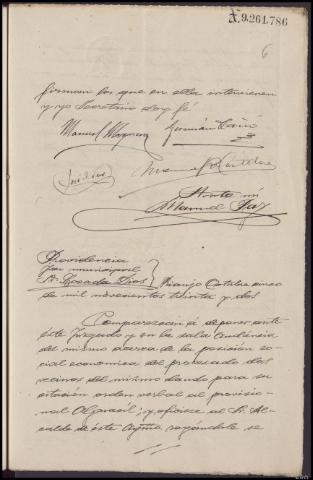 A.9.261.786
6
firman los que en ella intervienen
y yo Secretario doy fé
Manuel
Germán
Ante mi
Manuel Paz
Providencia
Juez municipal
Sr. Losada Dios
Rianjo Octubre cinco
de mil novecientos treinta y dos
Comparezcan á deponer ante
éste Juzgado y en la sala Audiencia
del mismo acerca de la posición so
cial economica del procesado dos
vecinos del mismo dando para su
citación orden verbal al provisio-
nal Alguacil; y ofíciese al Sr. Al-
calde de éste Aymto rogándole se